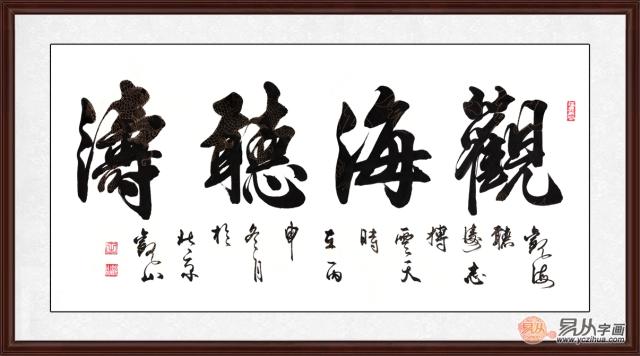 觀海聽濤
觀海聽濤志搏雲天時在丙申冬月於北京觀山
易从
易从字画
www.yczihua.com